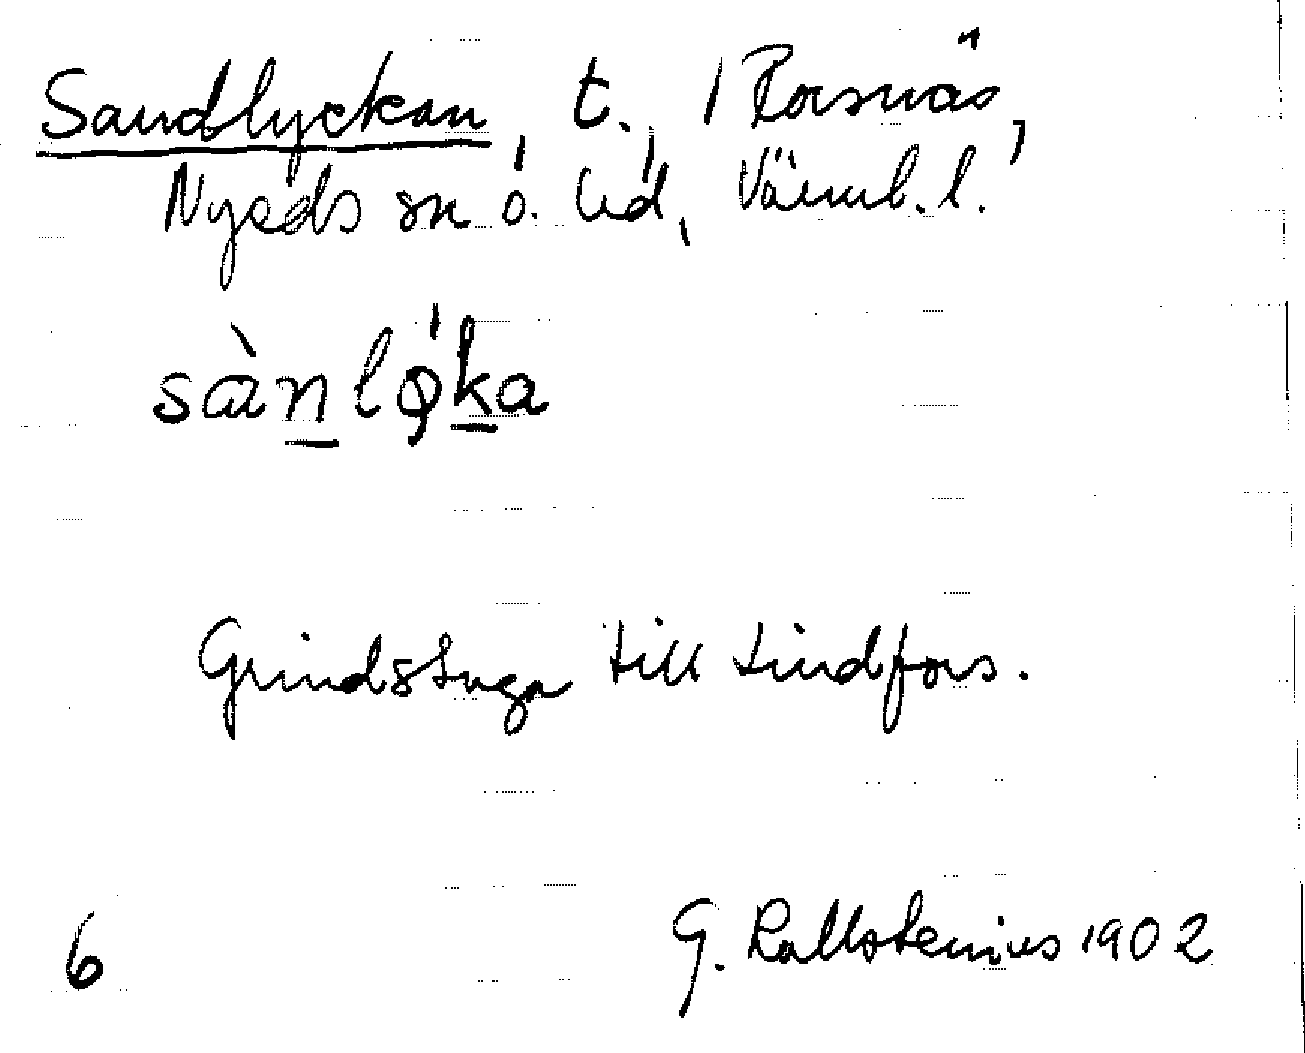 Sandlyckan, t., / Rorsnäs,
Nyeds sn ö. hd, Värml. l.
sànlǿ̨ka
Grindstuga till Lindfors.
6 G. Kallstenius 1902